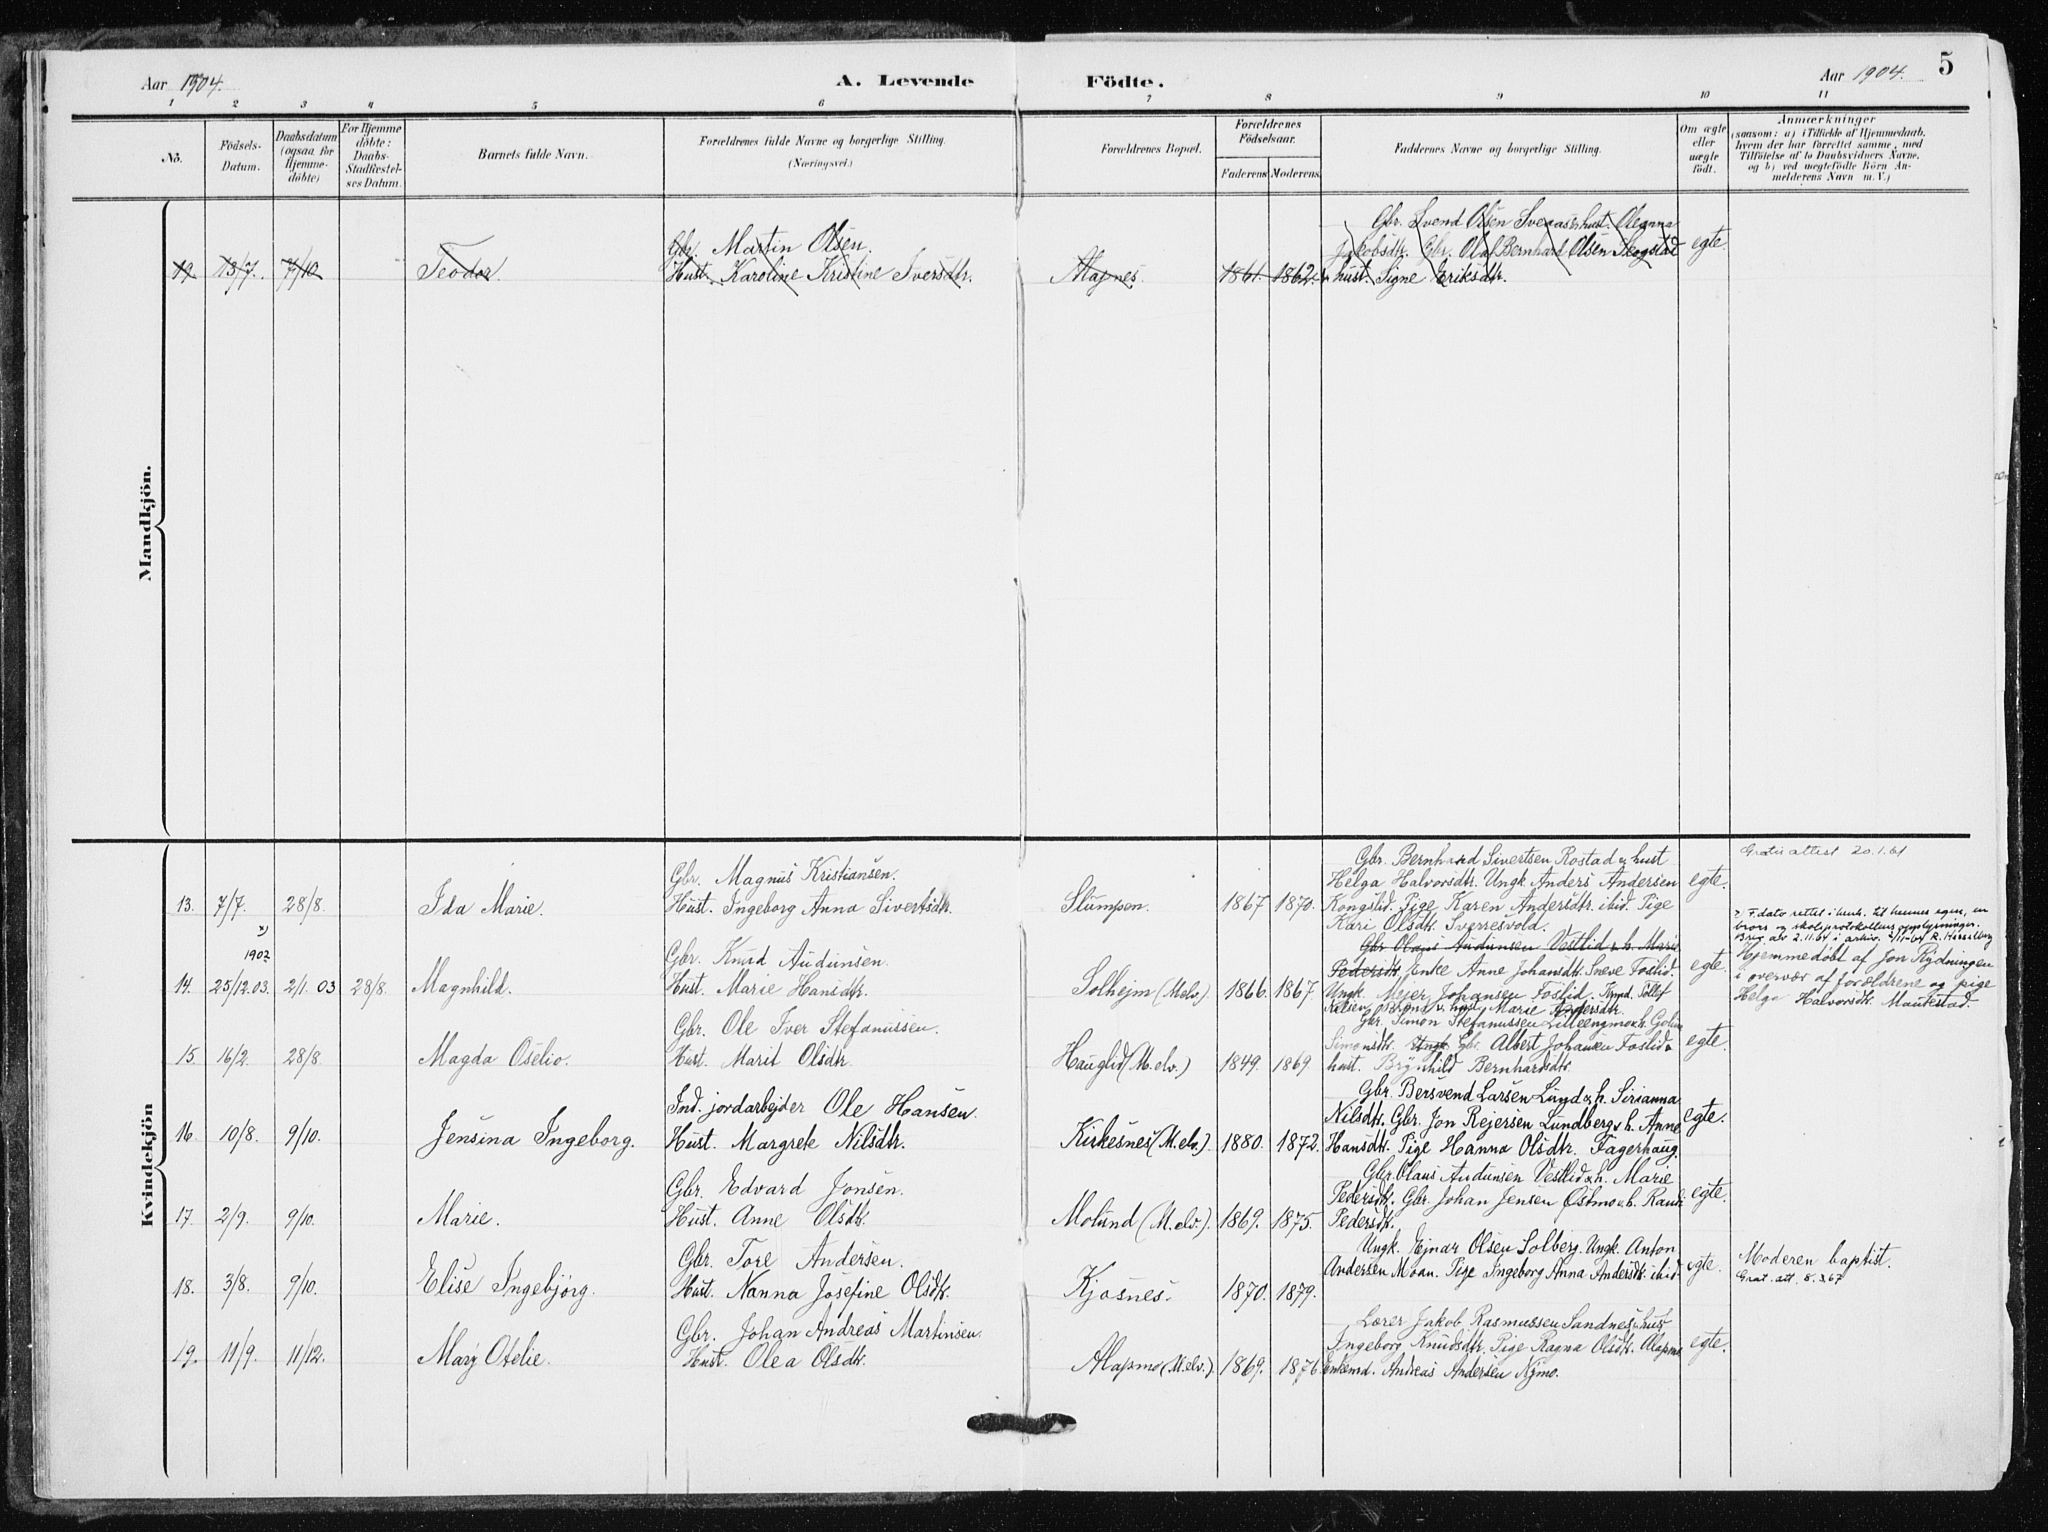 Aar 1904. A. Levende Födte. Aar 1904. 5
1 2 3 4 5 6 7 8 9 10 11
No. Födsels-Datum. Daabsdatum (ogsaa for Hjemme-döbte) For Hjemme döbte: Daabs-Stadfæstel-ses Datum. Barnets fulde Navn. Forældrenes fulde Navne og borgerlige Stilling. (Næringsvei.) Forældrenes Bopæl. Forældrenes Födselsaar. Faderens Moderens. Faddernes Navne og borgerlige Stilling. Om ægte eller uægte födt. Anmærkninger (saasom: a) i Tilfælde af Hjemmedaab, hvem der har forrettet samme, med Tilföielse af to Daabsvidners Navne, og b) ved uegtefödte Börn An-melderens Navn m. V.)
Mandkjön.
Gbr. Svend Olsen hust. Oleanna
Gbr. Martin Olsen. Jakobsdtr. Gbr. Olaf Bernhard Olsen Skogstad egte.
19 13/7. 7/10 Teodor. Hust. Karoline Kristine Iversdtr. Alapnes. 1861. 1862. hust. Signe Eriksdtr.
Kvindekjön
Gbr. Bernhard Sivertsen Rostad & hust Gratis attest 20.1.61
Gbr. Magnus Kristiansen. Helga Halvorsdtr. Ungk. Anders Andersen egte.
13. 7/7. 28/8. Ida Marie. Hust. Ingeborg Anna Sivertsdtr. Slumpen. 1867 1870. Kongslid. Pige Karen Andersdtr. ibid. Pige
Kari Olsdtr. Sverresvold.
x) F.dato rettet i henh. til hennes egen, en
brors og skoleprotokollens opplysninger.
Brev av 2.11.64 i arkiv.
x)
1902
Gbr. Olaus Audunsen Vestlid & h. Marie
Gbr. Knud Audunsen. Pedersdtr. Enke Anne Johansdtr. Sneve Foslid. egte. Hjemmedöbt af Jon Rydningen
14. 25/12.03. 2/1.03 28/8. Magnhild. Hust. Marie Hansdtr. Solhejm (M.elv.) 1866. 1867 Ungk. Mejer Johansen Foslid. i overvær af foröldrene og pige
Helga Halvorsdtr. Mauttstad.
hust Marie Andersdtr.
Gbr. Ole Iver Stefanussen. Gbr. Simon Stefanussen Lilleengmo & h.
15 16/2. 28/8 Magda Oselio. Hust. Marit Olsdtr. Hauglid (M.elv.) 1849. 1869 Simonsdtr. Ungk. Gbr. Albert Johansen Foslid & egte.
hust. Brynhild Bernhardsdtr.
Gbr. Bersvend Larsen Lund & h. Sirianna
Ind. jordarbejder Ole Hansen. Nilsdtr. Gbr. Jon Rejersen Lundberg & h. Anne egte.
16. 10/8. 9/10. Jensina Ingeborg. Hust. Margrete Nilsdtr. Kirkesnes (M.elv.) 1880. 1872. Hansdtr. Pige Hanna Olsdtr. Fagerhaug.
Gbr. Olaus Audunsen Vestlid & h. Marie
Gbr. Edvard Jonsen. Pedersdtr. Gbr. Johan Jensen Östmo & h. Randi egte.
17. 2/9. 9/10. Marie. Hust. Anne Olsdtr. Molund (M.elv.) 1869. 1875. Pedersdtr.
Gbr. Tore Andersen. Ungk. Ejnar Olsen Solberg. Ungk. Anton
18. 3/8. 9/10. Elise Ingebjörg. Hust. Nanna Josefine Olsdtr. Kjosnes. 1870. 1879. Andersen Moan. Pige Ingeborg Anna Andersdtr. ibid. egte. Moderen baptist.
Grat. att. 8.3.67
Lærer Jakob Rasmussen Sandnes & hust
Gbr. Johan Andreas Martinsen. Ingeborg Knudsdtr. Pige Ragna Olsdtr. Alapmo egte.
19. 11/9. 11/12. Mary Otelie. Hust. Olea Olsdtr. Alapmo (M.elv.) 1869. 1876 Enkemd. Andreas Andersen Nymo.